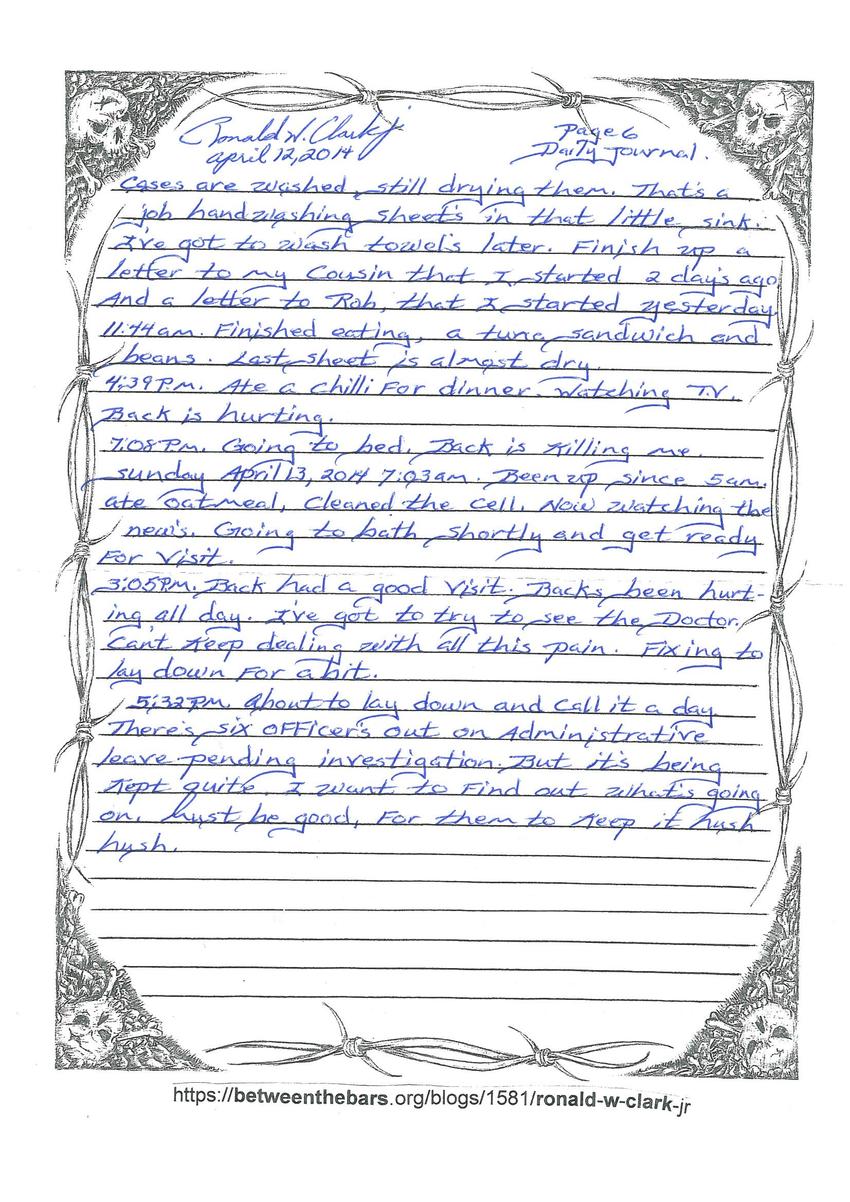 Ronald W. Clark jr
Page 6
april 12, 2014
Daily Journal.
Cases are washed, still drying them. That's a
job handwashing sheet's in that little sink.
I've got to wash towel's later. Finish up a
letter to my Cousin that I started 2 day's ago
And a letter to Rob, that I started yesterday
11:44am. Finished eating, a tuna sandwich and
beans. Last sheet is almost dry.
4:39P.M. Ate a chilli For dinner. Watching T.V.
Back is hurting.
7:08P.M. Going to bed. Back is Killing me.
sunday April 13, 2014 7:03am. Been up since 5am.
ate oatmeal, Cleaned the cell. Now watching the
new's. Going to bath shortly and get ready
For Visit.
3:05P.M. Back had a good Visit. Backs been hurt-
ing all day. I've got to try to see the Doctor.
Can't Keep dealing with all this pain. Fixing to
lay down For a bit.
5:32P.M. about to lay down and call it a day
There's six oFFicer's out on Administrative
leave pending investigation. But it's being
Kept quite. I want to Find out what's going
on. Must be good, For them to Keep it hush
hush.
https://betweenthebars.org/blogs/1581/ronald-w-clark-jr